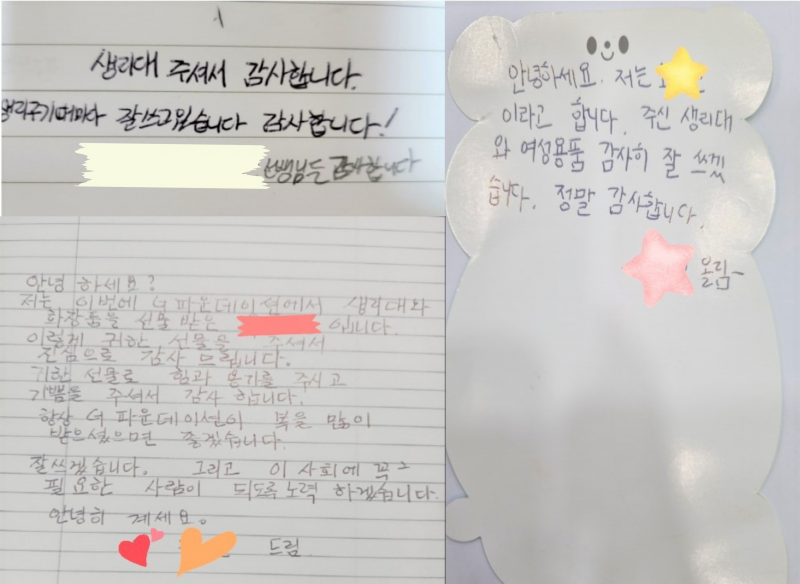 생리대 주셔서 감사합니다.
생리주기때마다 잘쓰고있습니다 감사합니다!
선생님들 감사합니다
안녕 하세요?
저는 이번에 G파운데이션에서 생리대와
화장품을 선물 받은 입니다.
이렇게 귀한 선물을 주셔서
진심으로 감사 드립니다.
귀한 선물로 힘과 온기를 주시고
기쁨을 주셔서 감사 합니다.
항상 G 파운데이션이 복을 많이
받으셨으면 좋겠습니다.
잘쓰겠습니다. 그리고 이 사회에 꼭
필요한 사람이 되도록 노력 하겠습니다.
안녕히 계세요.
드림
안녕하세요. 저는
이라고 합니다. 주신 생리대
와 여성용품 감사히 잘 쓰겠
습니다. 정말 감사합니다.
올림-